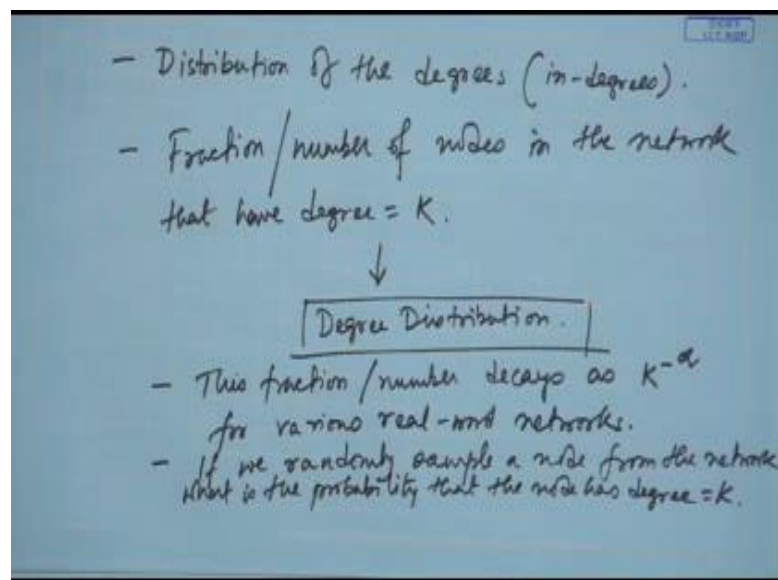 - Distribution of the degrees (in-degrees).
- Fraction/number of nodes in the network
that have degree = K.
↓
Degree Distribution.
- This fraction/number decays as K^-α
for various real-world networks.
- If we randomly sample a node from the network
what is the probability that the node has degree = K.